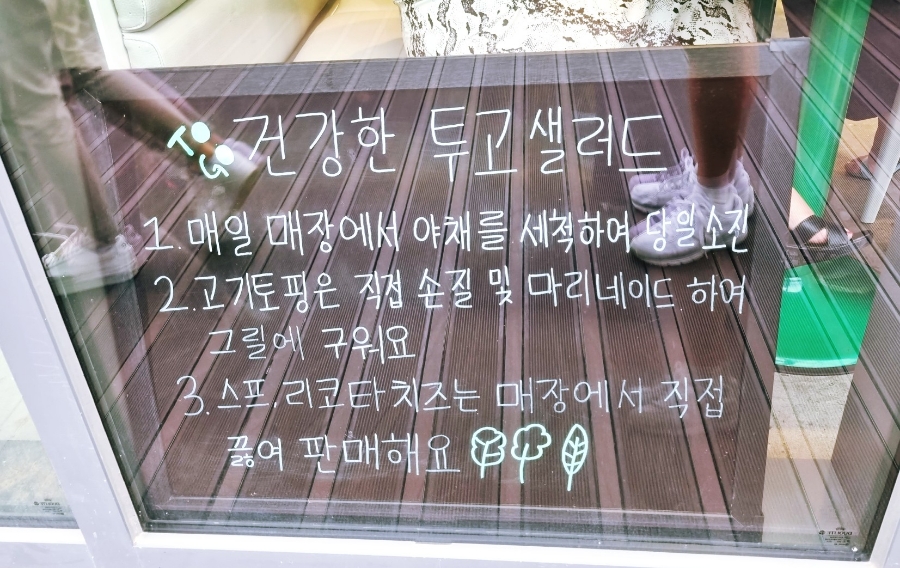 TO GO 건강한 투고샐러드
1. 매일 매장에서 야채를 세척하여 당일소진
2. 고기토핑은 직접 손질 및 마리네이드 하여
그릴에 구워요
3. 스프, 리코타치즈는 매장에서 직접
끓여 판매해요